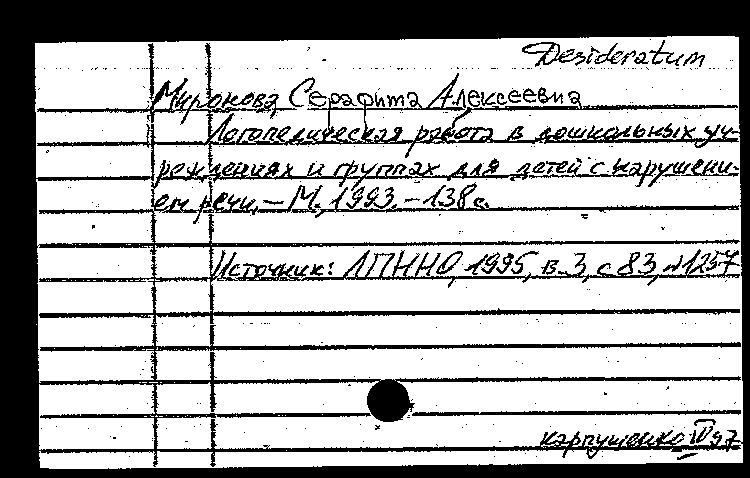 Desideratum
Миронова, Серафима Алексеевна
Логопедическая работа в дошкольных уч-
реждениях и группах для детей с нарушени-
ем речи. – М., 1993. – 138 с.
Источник: ЛПННО, 1995, в. 3, с 83, №1257
карпушенко III 97